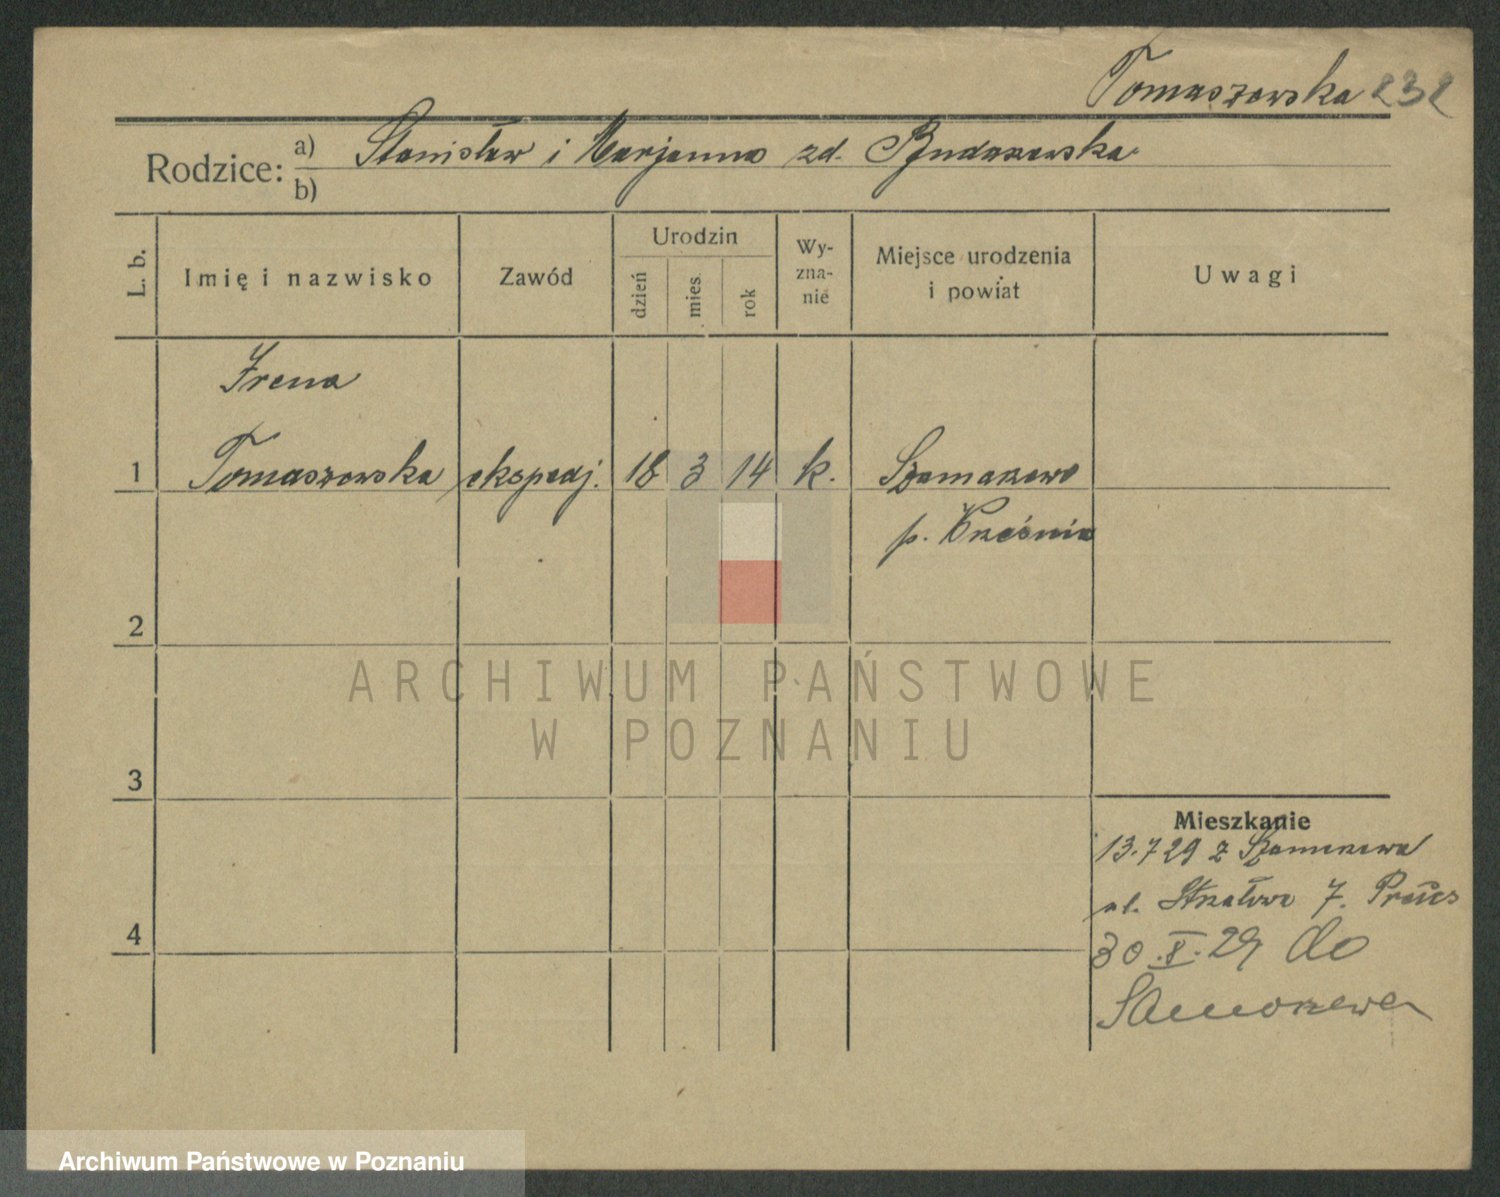 Tomaszewska 232
Rodzice: a) Stanisław i Marjanna zd.
b)
L. b.
Imię i nazwisko
Zawód
Urodzin
dzień
mies.
rok
Wy-
zna-
nie
Miejsce urodzenia
i powiat
Uwagi
Irena
1 Tomaszewska ekspedj. 18 3 14 k. Szamarzewo
p. Września
2
3
4
Mieszkanie
13.7 29 z Szamarzewa
ul. Strzałowa 7.
30.X.29 do
ARCHIWUM PAŃSTWOWE
W POZNANIU
Archiwum Państwowe w Poznaniu